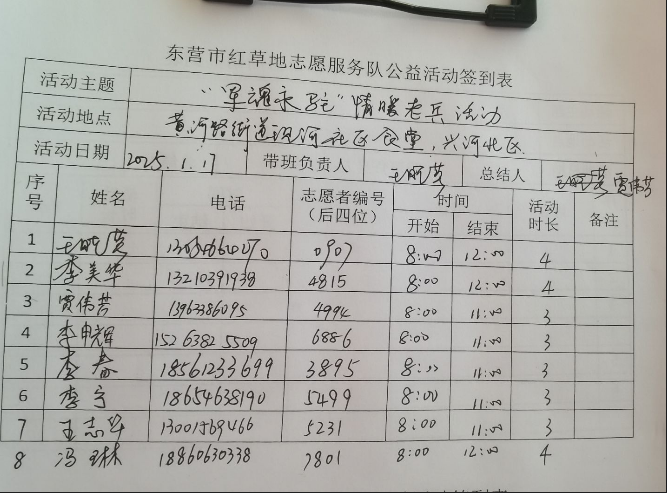 东营市红草地志愿服务队公益活动签到表
活动主题 “军魂永驻”情暖老兵活动
活动地点 黄河路街道沉河社区食堂，兴河北区
活动日期 2025.1.17 带班负责人 王丽英 总结人 王丽英 贾伟芳
序号 姓名 电话 志愿者编号（后四位） 时间 开始 结束 活动时长 备注
1 王丽英 0907 8:00 12:00 4
2 李美华 13210391938 4815 8:00 12:00 4
3 贾伟芳 13963386095 4994 8:00 11:00 3
4 李申辉 15263825509 6886 8:00 11:00 3
5 李春 18561233699 3895 8:00 11:00 3
6 李宁 18654638190 5499 8:00 11:00 3
7 王志华 13001569466 5231 8:00 11:00 3
8 冯琳 18860630338 7801 8:00 12:00 4